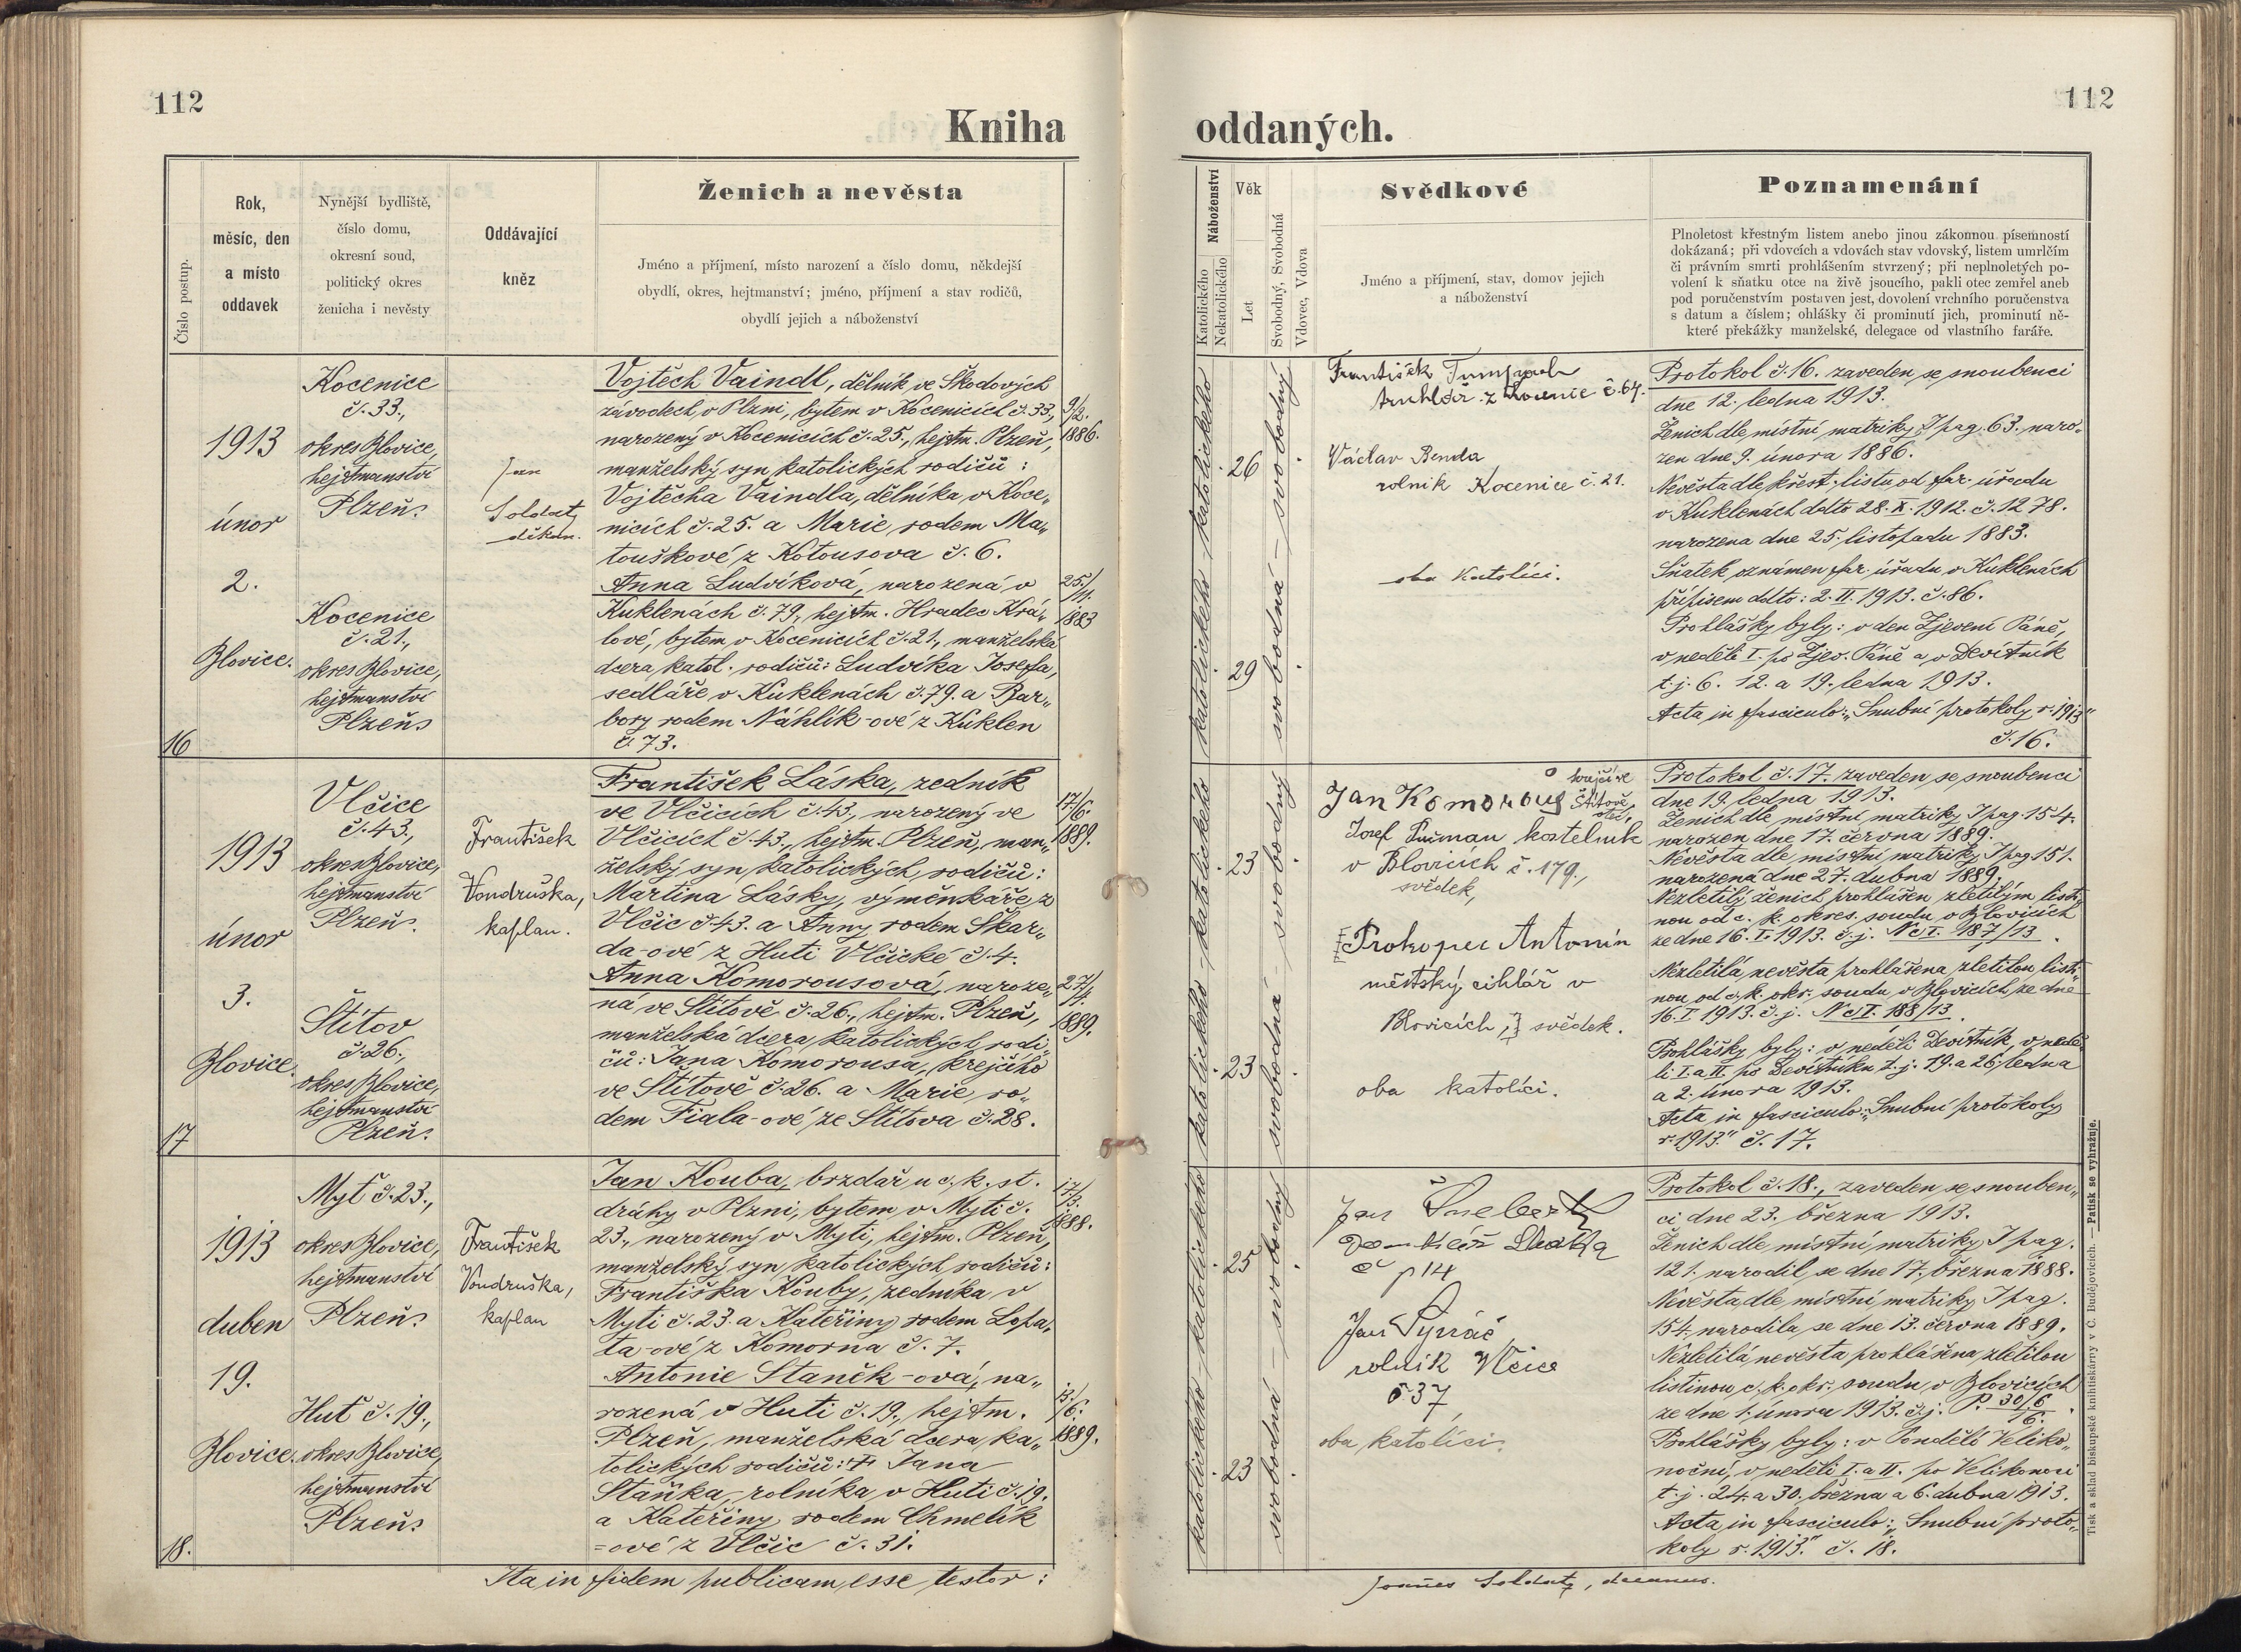 112
Kniha
Ženich a nevěsta
Číslo postup.
Rok,
měsíc, den
a místo
oddavek
Nynější bydliště,
číslo domu,
okresní soud,
politický okres
ženicha i nevěsty
Oddávající
kněz
Jméno a příjmení, místo narození a číslo domu, někdejší
obydlí, okres, hejtmanství; jméno, příjmení a stav rodičů,
obydlí jejich a náboženství
16
1913
únor
2.
Blovice.
Kocenice
č. 33.,
okres Blovice,
hejtmanství
Plzeň.
Kocenice
č. 21.,
okres Blovice,
hejtmanství
Plzeň.
Jan
Soldat,
děkan.
Vojtěch Vaindl, dělník ve Škodových
závodech v Plzni, bytem v Kocenicích č. 33,
narozený v Kocenicích č. 25., hejtm. Plzeň,
manželský syn katolických rodičů:
Vojtěcha Vaindla, dělníka v Koce„
nicích č. 25. a Marie, rodem Ma„
touškové z Kotousova č. 6.
Anna Ludvíková, narozená v
Kuklenách č. 79., hejtm. Hradec Krá„
lové, bytem v Kocenicích č. 21., manželská
dcera katol. rodičů: Ludvíka Josefa,
sedláře v Kuklenách č. 79. a Bar„
bory rodem Náhlík-ové z Kuklen
č. 73.
9/2.
1886.
25./
11.
1883
17
1913
únor
3.
Blovice.
Vlčice
č. 43.,
okres Blovice,
hejtmanství
Plzeň.
Štítov
č. 26.,
okres Blovice,
hejtmanství
Plzeň.
František
Vondruška,
kaplan.
František Láska, zedník
ve Vlčicích č. 43., narozený ve
Vlčicích č. 43., hejtm. Plzeň, man„
želský syn katolických rodičů:
Martina Lásky, výměnkáře z
Vlčic č. 43. a Anny rodem Škar„
da-ové z Huti Vlčické č. 4.
Anna Komorousová, naroze„
ná ve Štítově č. 26., hejtm. Plzeň,
manželská dcera katolických rodi„
čů: Jana Komorousa, krejčího
ve Štítově č. 26. a Marie, ro„
dem Fiala-ové ze Štítova č. 28.
17/6.
1889.
27./
4.
1889.
18.
1913
duben
19.
Blovice.
Myť č. 23.,
okres Blovice,
hejtmanství
Plzeň.
Huť č. 19.,
okres Blovice,
hejtmanství
Plzeň.
František
Vondruška,
kaplan
Jan Kouba, brzdař u c. k. st.
dráhy v Plzni, bytem v Myti č.
23., narozený v Myti, hejtm. Plzeň,
manželský syn katolických rodičů:
Františka Kouby, zedníka v
Myti č. 23. a Kateřiny rodem Lopa„
ta-ové z Komorna č. 7.
Antonie Staněk-ová, na„
rozená v Huti č. 19., hejtm.
Plzeň, manželská dcera ka„
tolických rodičů: † Jana
Staňka, rolníka v Huti č. 19.
a Kateřiny, rodem Chmelík
-ové z Vlčic č. 31.
17./
3.
1888.
13./
6.
1889.
Ita in fidem publicam esse testor:
112
oddaných.
Náboženství
Katolického
Nekatolického
Věk
Let
Svobodný, Svobodná
Vdovec, Vdova
Svědkové
Jméno a příjmení, stav, domov jejich
a náboženství
Poznamenání
Plnoletost křestným listem anebo jinou zákonnou písemností
dokázaná; při vdovcích a vdovách stav vdovský, listem umrlčím
či právním smrti prohlášením stvrzený; při neplnoletých po-
volení k sňatku otce na živě jsoucího, pakli otec zemřel aneb
pod poručenstvím postaven jest, dovolení vrchního poručenstva
s datum a číslem; ohlášky či prominutí jich, prominutí ně-
které překážky manželské, delegace od vlastního faráře.
katolického
katolického
26
29
svobodný
svobodná
František
truhlář z Kocenic č. 64.
Václav Benda
rolník Kocenice č. 21.
oba Katolíci.
Protokol č. 16. zaveden se snoubenci
dne 12. ledna 1913.
Ženich dle místní matriky I pag. 63. naro„
zen dne 9. února 1886.
Nevěsta dle křest. listu od far. úřadu
v Kuklenách ddto 28. X. 1912. č. 1278.
narozena dne 25. listopadu 1883.
Sňatek oznámen far. úřadu v Kuklenách
přípisem ddto: 2. II. 1913. č. 86.
Prohlášky byly: v den Zjevení Páně,
v neděli I. po Zjev. Páně a v Devítník
t. j. 6. 12. a 19. ledna 1913.
Acta in fasciculo: „Snubní protokoly r. 1913“
č. 16.
katolického
katolického
23
23
svobodný
svobodná
Jan Komorous krejčí ve
Štítově,
otec,
Josef Pušman kostelník
v Blovicích č. 179.,
svědek,
[Prokopec Antonín
městský cihlář v
Blovicích,] svědek.
oba katolíci.
Protokol č. 17. zaveden se snoubenci
dne 19. ledna 1913.
Ženich dle místní matriky I pag. 154.
narozen dne 17. června 1889.
Nevěsta dle místní matriky I pag 151.
narozená dne 27. dubna 1889.
Nezletilý ženich prohlášen zletilým listi„
nou od c. k. okres. soudu v Blovicích
ze dne 16. I. 1913. č. j. Nc I. 187/13.
Nezletilá nevěsta prohlášena zletilou listi„
nou od c. k. okr. soudu v Blovicích ze dne
16. I. 1913. č. j. Nc I. 188/13.
Prohlášky byly: v neděli Devítník, v nedě„
li I. a II. po Devítníku t. j. 19. a 26. ledna
a 2. února 1913.
Acta in fasciculo: „Snubní protokoly
r. 1913.“ č. 17.
katolického
katolického
25
23
svobodný
svobodná
Jan Šnebert
domkář
č 14
Jan
rolník Vlčice
č 37
oba katolíci.
Protokol č. 18., zaveden se snouben„
ci dne 23. března 1913.
Ženich dle místní matriky I pag.
121. narodil se dne 17. března 1888.
Nevěsta dle místní matriky I pag.
154. narodila se dne 13. června 1889.
Nezletilá nevěsta prohlášena zletilou
listinou c. k. okr. soudu v Blovicích
ze dne 1. února 1913. č. j. P. 30/6
16.
Prohlášky byly: v Pondělí Veliko„
noční, v neděli I. a II. po Velikonoci
t. j. 24. a 30. března a 6. dubna 1913.
Acta in fasciculo: „Snubní proto„
koly r. 1913.“ č. 18.
Joannes Soldat, decanus.
Tisk a sklad biskupské knihtiskárny v Č. Budějovicích. — Patisk se vyhražuje.